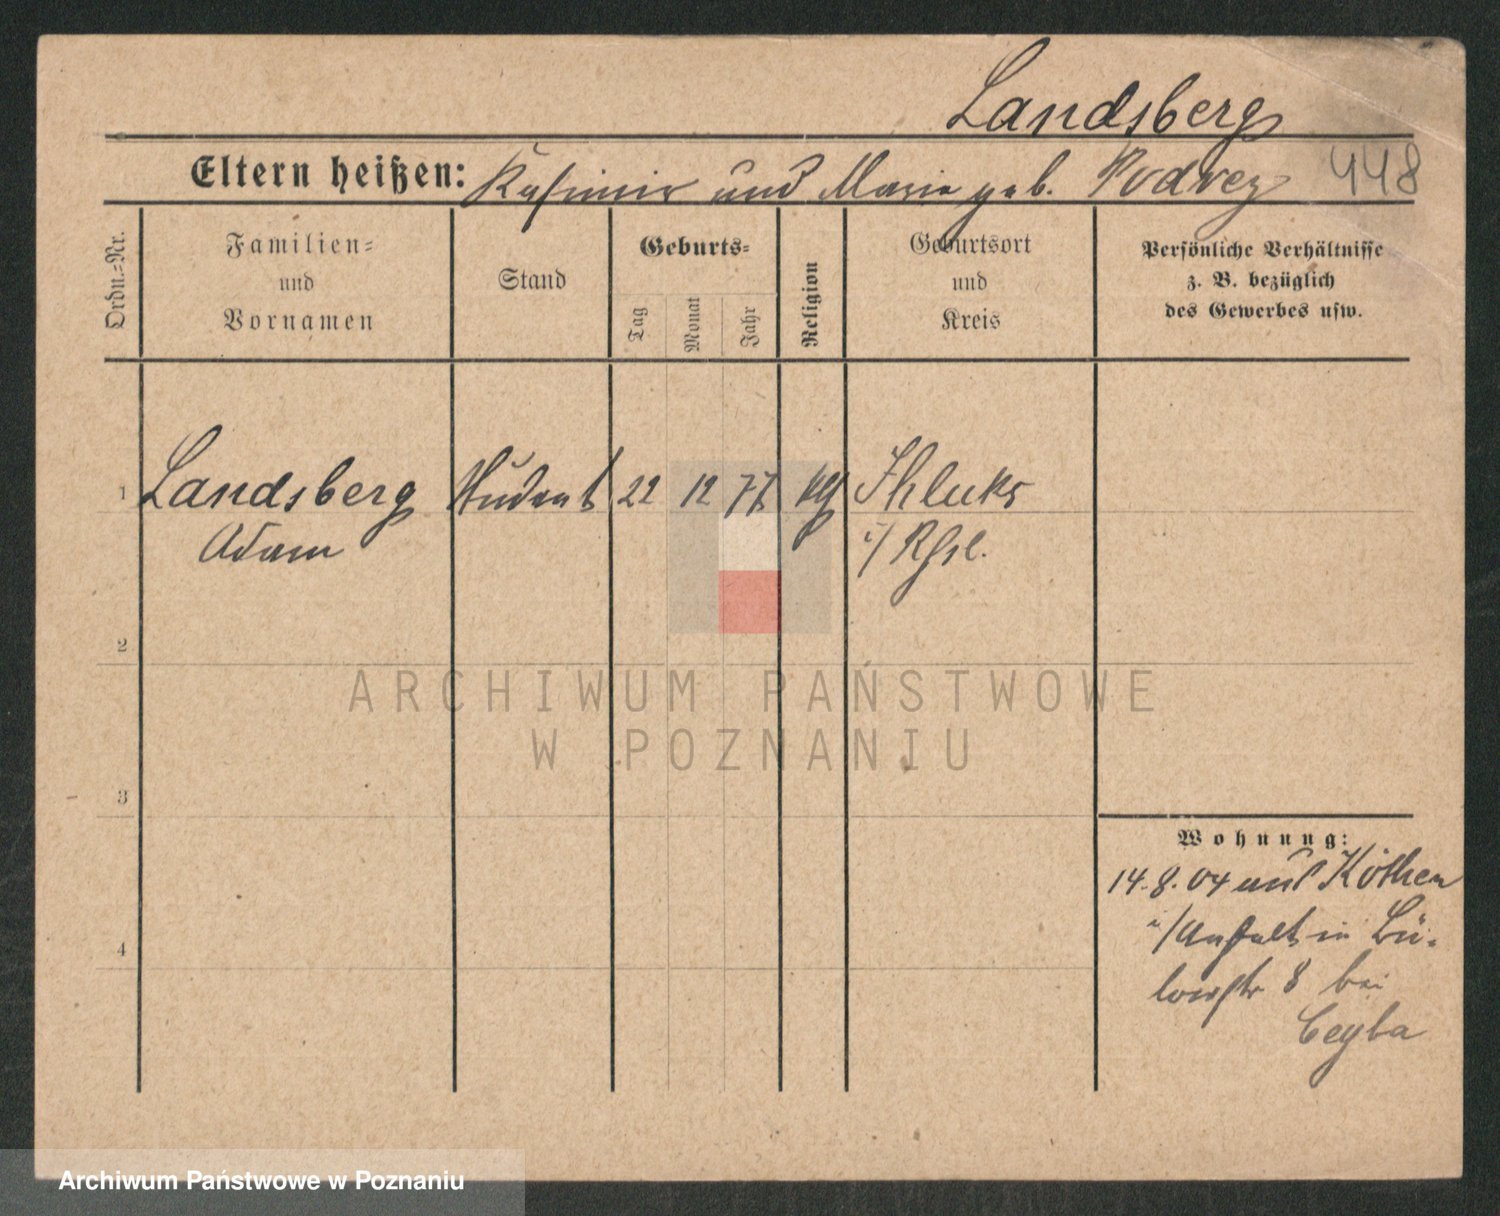 Landsberg
Eltern heißen: Kasimir und Marie geb. Podrez 448
Ordn.=Nr.
Familien=
und
Vornamen
Stand
Geburts=
Tag
Monat
Jahr
Religion
Geburtsort
und
Kreis
Persönliche Verhältnisse
z. B. bezüglich
des Gewerbes usw.
1 Landsberg Student 22 12 77
Adam i/ Rßl.
2
3
4
Wohnung:
14.8.04 aus Köthen
i/Anhalt in Bü-
lowstr 8 bei
Ceyba
ARCHIWUM PAŃSTWOWE
W POZNANIU
Archiwum Państwowe w Poznaniu